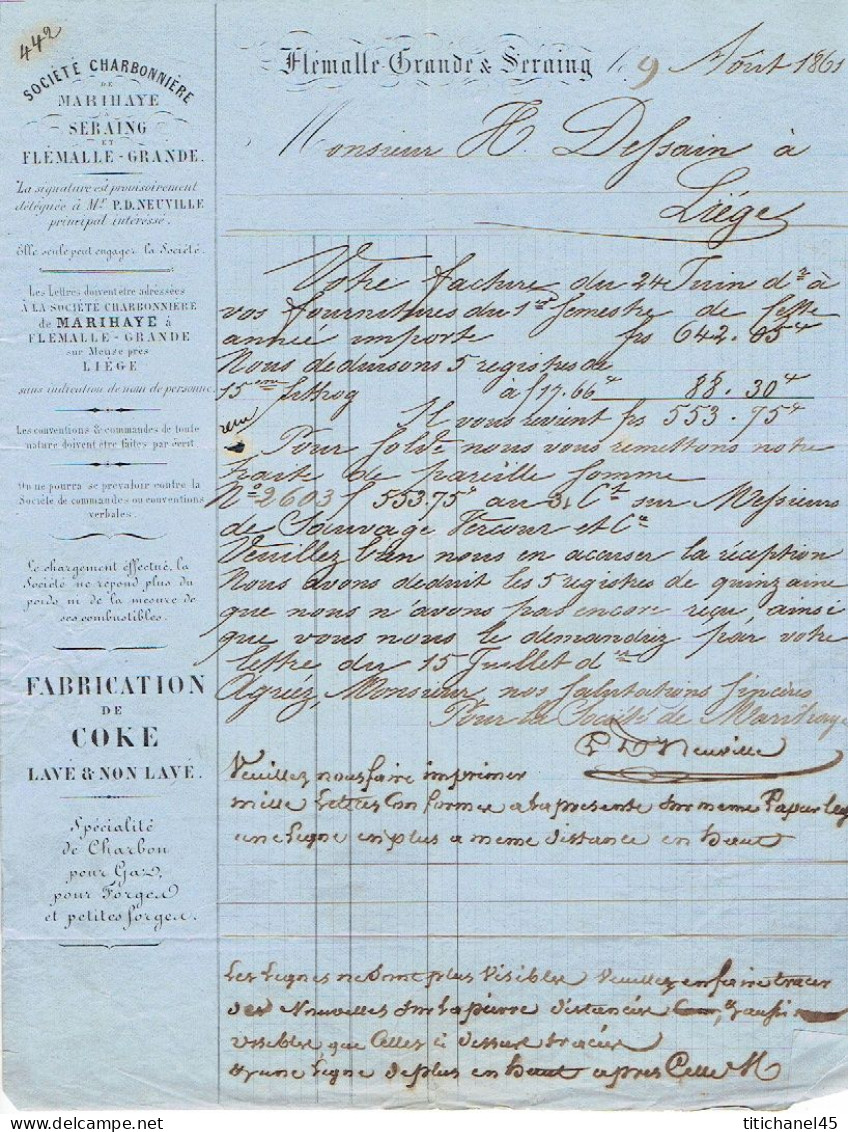 442
SOCIÉTÉ CHARBONNIÈRE
DE
MARIHAYE
à
SERAING
ET
FLÉMALLE-GRANDE.
La signature est provisoirement
déléguée à Mr P.D. NEUVILLE
principal intéressé.
Elle seule peut engager la Société.
Les Lettres doivent être adressées
À LA SOCIÉTÉ CHARBONNIÈRE
de MARIHAYE à
FLÉMALLE-GRANDE
sur Meuse près
LIÉGE
sans indication de nom de personne.
Les conventions & commandes de toute
nature doivent être faites par écrit.
On ne pourra se prévaloir contre la
Société de commandes ou conventions
verbales.
Le chargement effectué, la
Société ne répond plus du
poids ni de la mesure de
ses combustibles.
FABRICATION
DE
COKE
LAVÉ & NON LAVÉ.
Spécialité
de Charbon
pour Gaz,
pour Forges
et petites forges.
Flémalle-Grande & Seraing le 9 Août 1861
Monsieur H. Dessain à
Liége
Votre facture du 24 Juin dr à
vos fournitures du 1er Semestre de cette
année importe frs 642.05
Nous deduisons 5 registres de
15me à f 17.66 88.30
Il vous revient frs 553.75
Pour solde nous vous remettons notre
traite de pareille somme
No 2603 f 553.75 au 31 Ct sur Messieurs
de Sauvage Vercour et Ce
Veuillez bien nous en accuser la réception
Nous avons deduit les 5 registres de quinzaine
que nous n'avons pas encore reçu, ainsi
que vous nous le demandiez par votre
lettre du 15 Juillet dr
Agréez, Monsieur, nos salutations sincères
Pour la Société de Marihaye
P D Neuville
Veuillez nous faire imprimer
mille Lettres Conformes a la presente sur meme Papier
une Ligne en plus a meme distance en haut
Les Lignes ne sont plus Visibles Veuillez en faire tracer
des Nouvelles sur la pierre distancées & aussi
visibles que Celles ci dessus tracées
& une Ligne de plus en haut apres Celle M
titichanel45